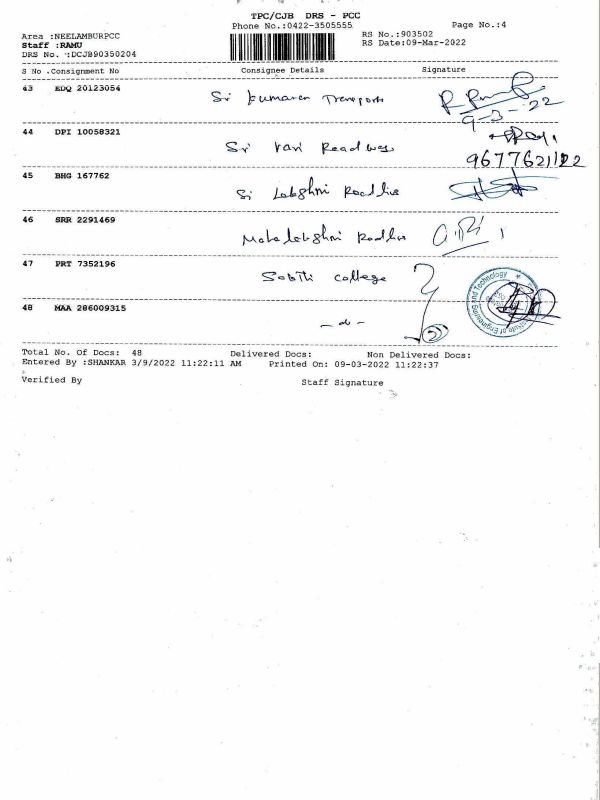 TPC/CJB DRS - PCC
Phone No.:0422-3505555 Page No.:4
Area :NEELAMBURPCC RS No.:903502
Staff :RAMU RS Date:09-Mar-2022
DRS No. :DCJB90350204
S No .Consignment No Consignee Details Signature
43 EDQ 20123054 Sri Kumaran Transports
9-3-22
44 DPI 10058321 Sri Vari Roadways
9677621122
45 BHG 167762 Sri Lakshmi Roadlins
46 SRR 2291469 Mahalakshmi Roadlins
47 PRT 7352196 college
48 MAA 286009315 - do -
Total No. Of Docs: 48 Delivered Docs: Non Delivered Docs:
Entered By :SHANKAR 3/9/2022 11:22:11 AM Printed On: 09-03-2022 11:22:37
Verified By Staff Signature